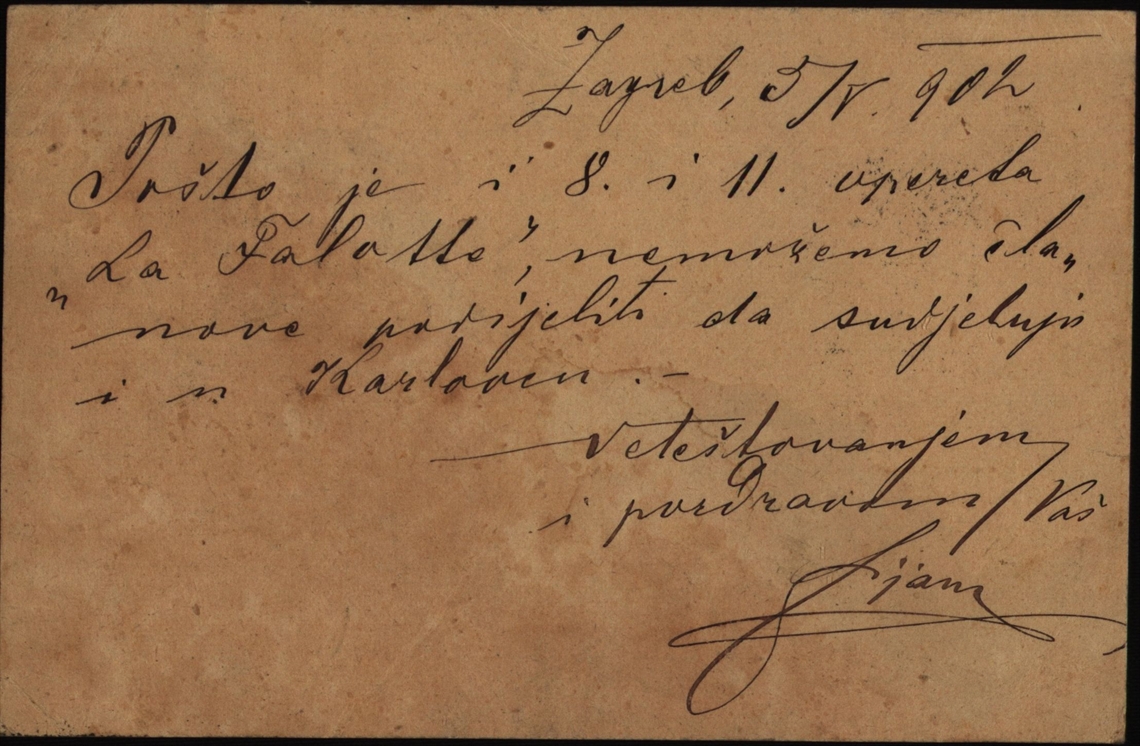 Zagreb, 5/V. 902
Pošto je i 8. i 11. opereta
„La Falotte", nemožemo čla„
nove podijeliti da sudjeluju
i u Karlovcu. –
Veleštovanjem
i pozdravom / Vaš